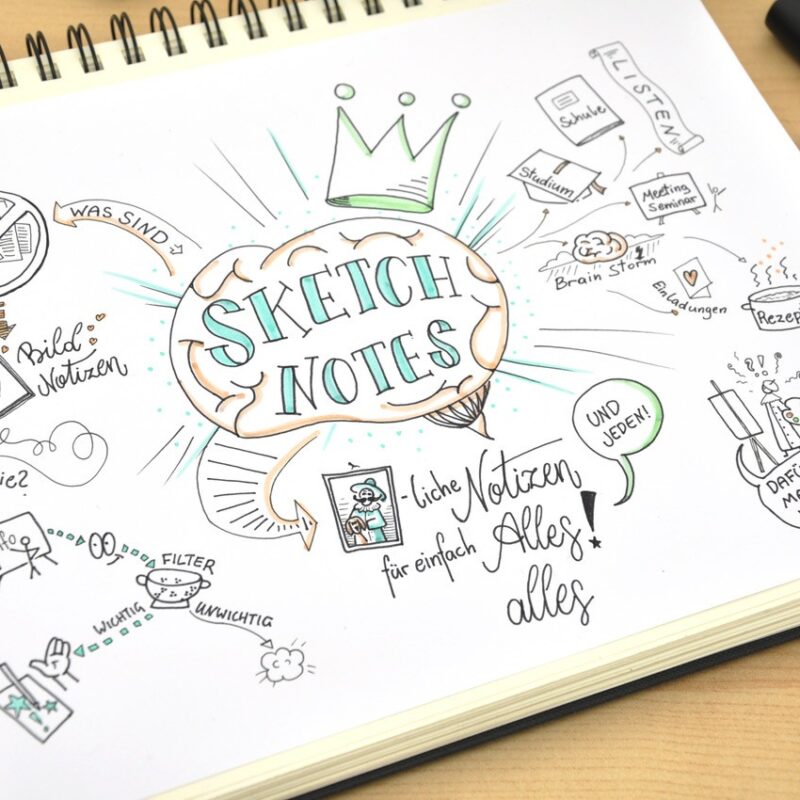 WAS SIND
SKETCH
NOTES
LISTEN
Schule
Studium
Meeting
Seminar
Brain Storm
Einladungen
Bild
Notizen
UND
JEDEN!
-liche Notizen
für einfach Alles!
alles
FILTER
WICHTIG
UNWICHTIG